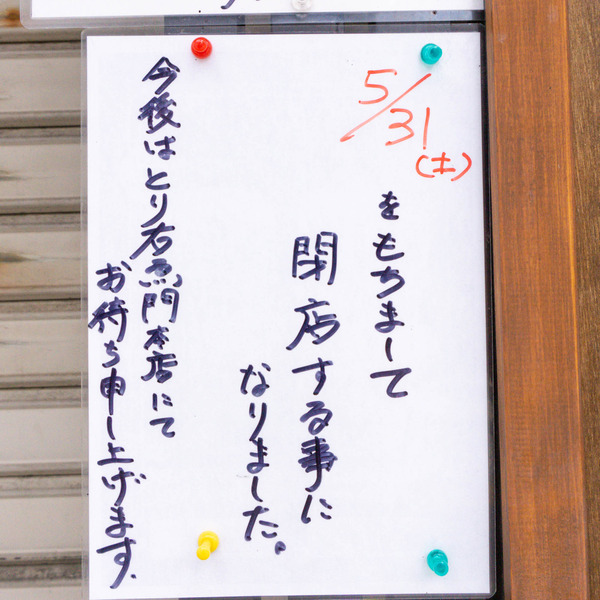 5/31
(土)
をもちまして
閉店する事に
なりました。
今後はとり右ヱ門本店にて
お待ち申し上げます。